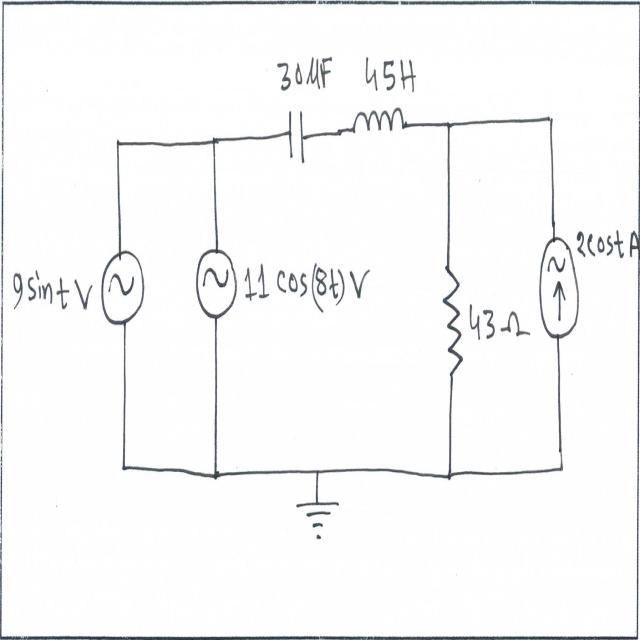 30μF 45H
9sint V
11 cos(8t) V
43Ω
2cost A